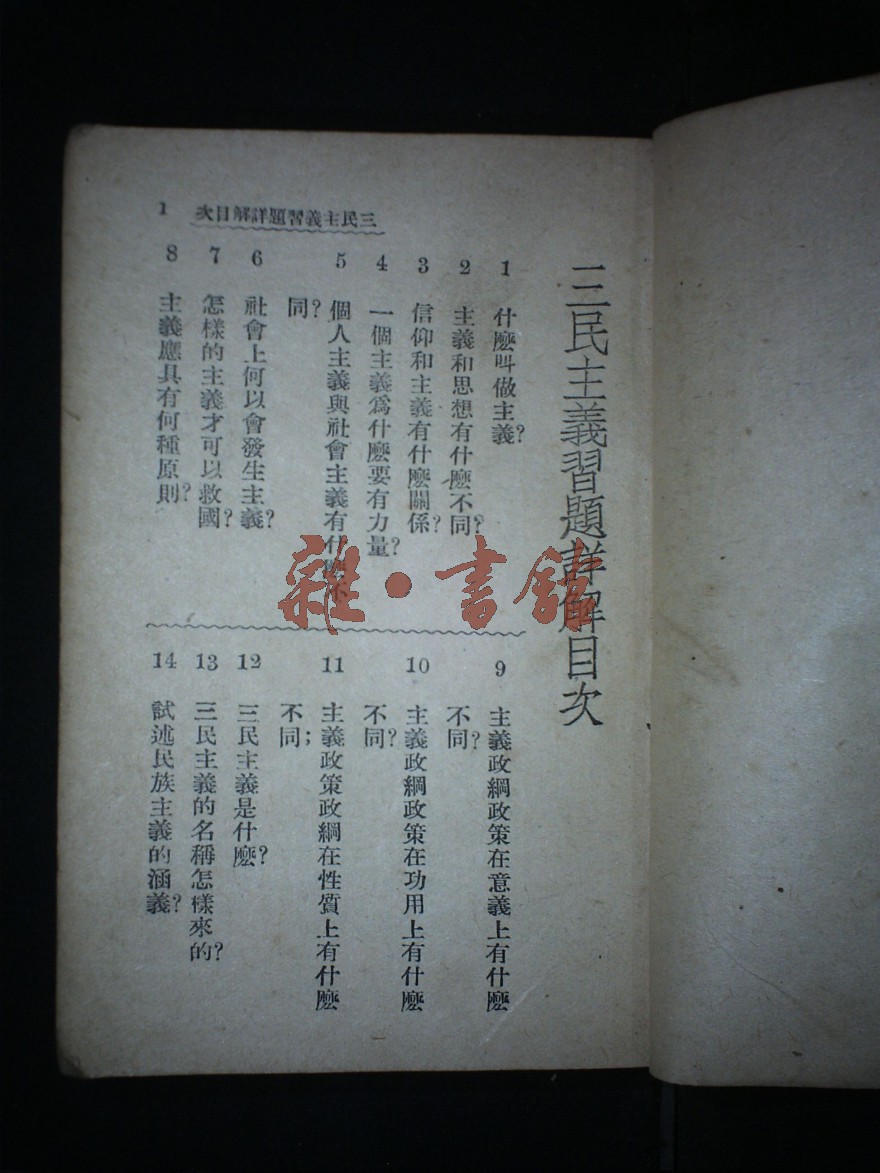 三民主義習題詳解目次 1
三民主義習題詳解目次
1 什麼叫做主義？
2 主義和思想有什麼不同？
3 信仰和主義有什麼關係？
4 一個主義爲什麼要有力量？
5 個人主義與社會主義有什麼不
同？
6 社會上何以會發生主義？
7 怎樣的主義才可以救國？
8 主義應具有何種原則？
9 主義政綱政策在意義上有什麼
不同？
10 主義政綱政策在功用上有什麼
不同？
11 主義政策政綱在性質上有什麼
不同；
12 三民主義是什麼？
13 三民主義的名稱怎樣來的？
14 試述民族主義的涵義？
雜·書館